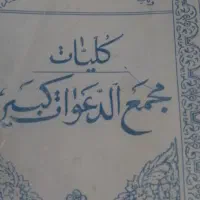 كليات
مجمع الدعوات كبير